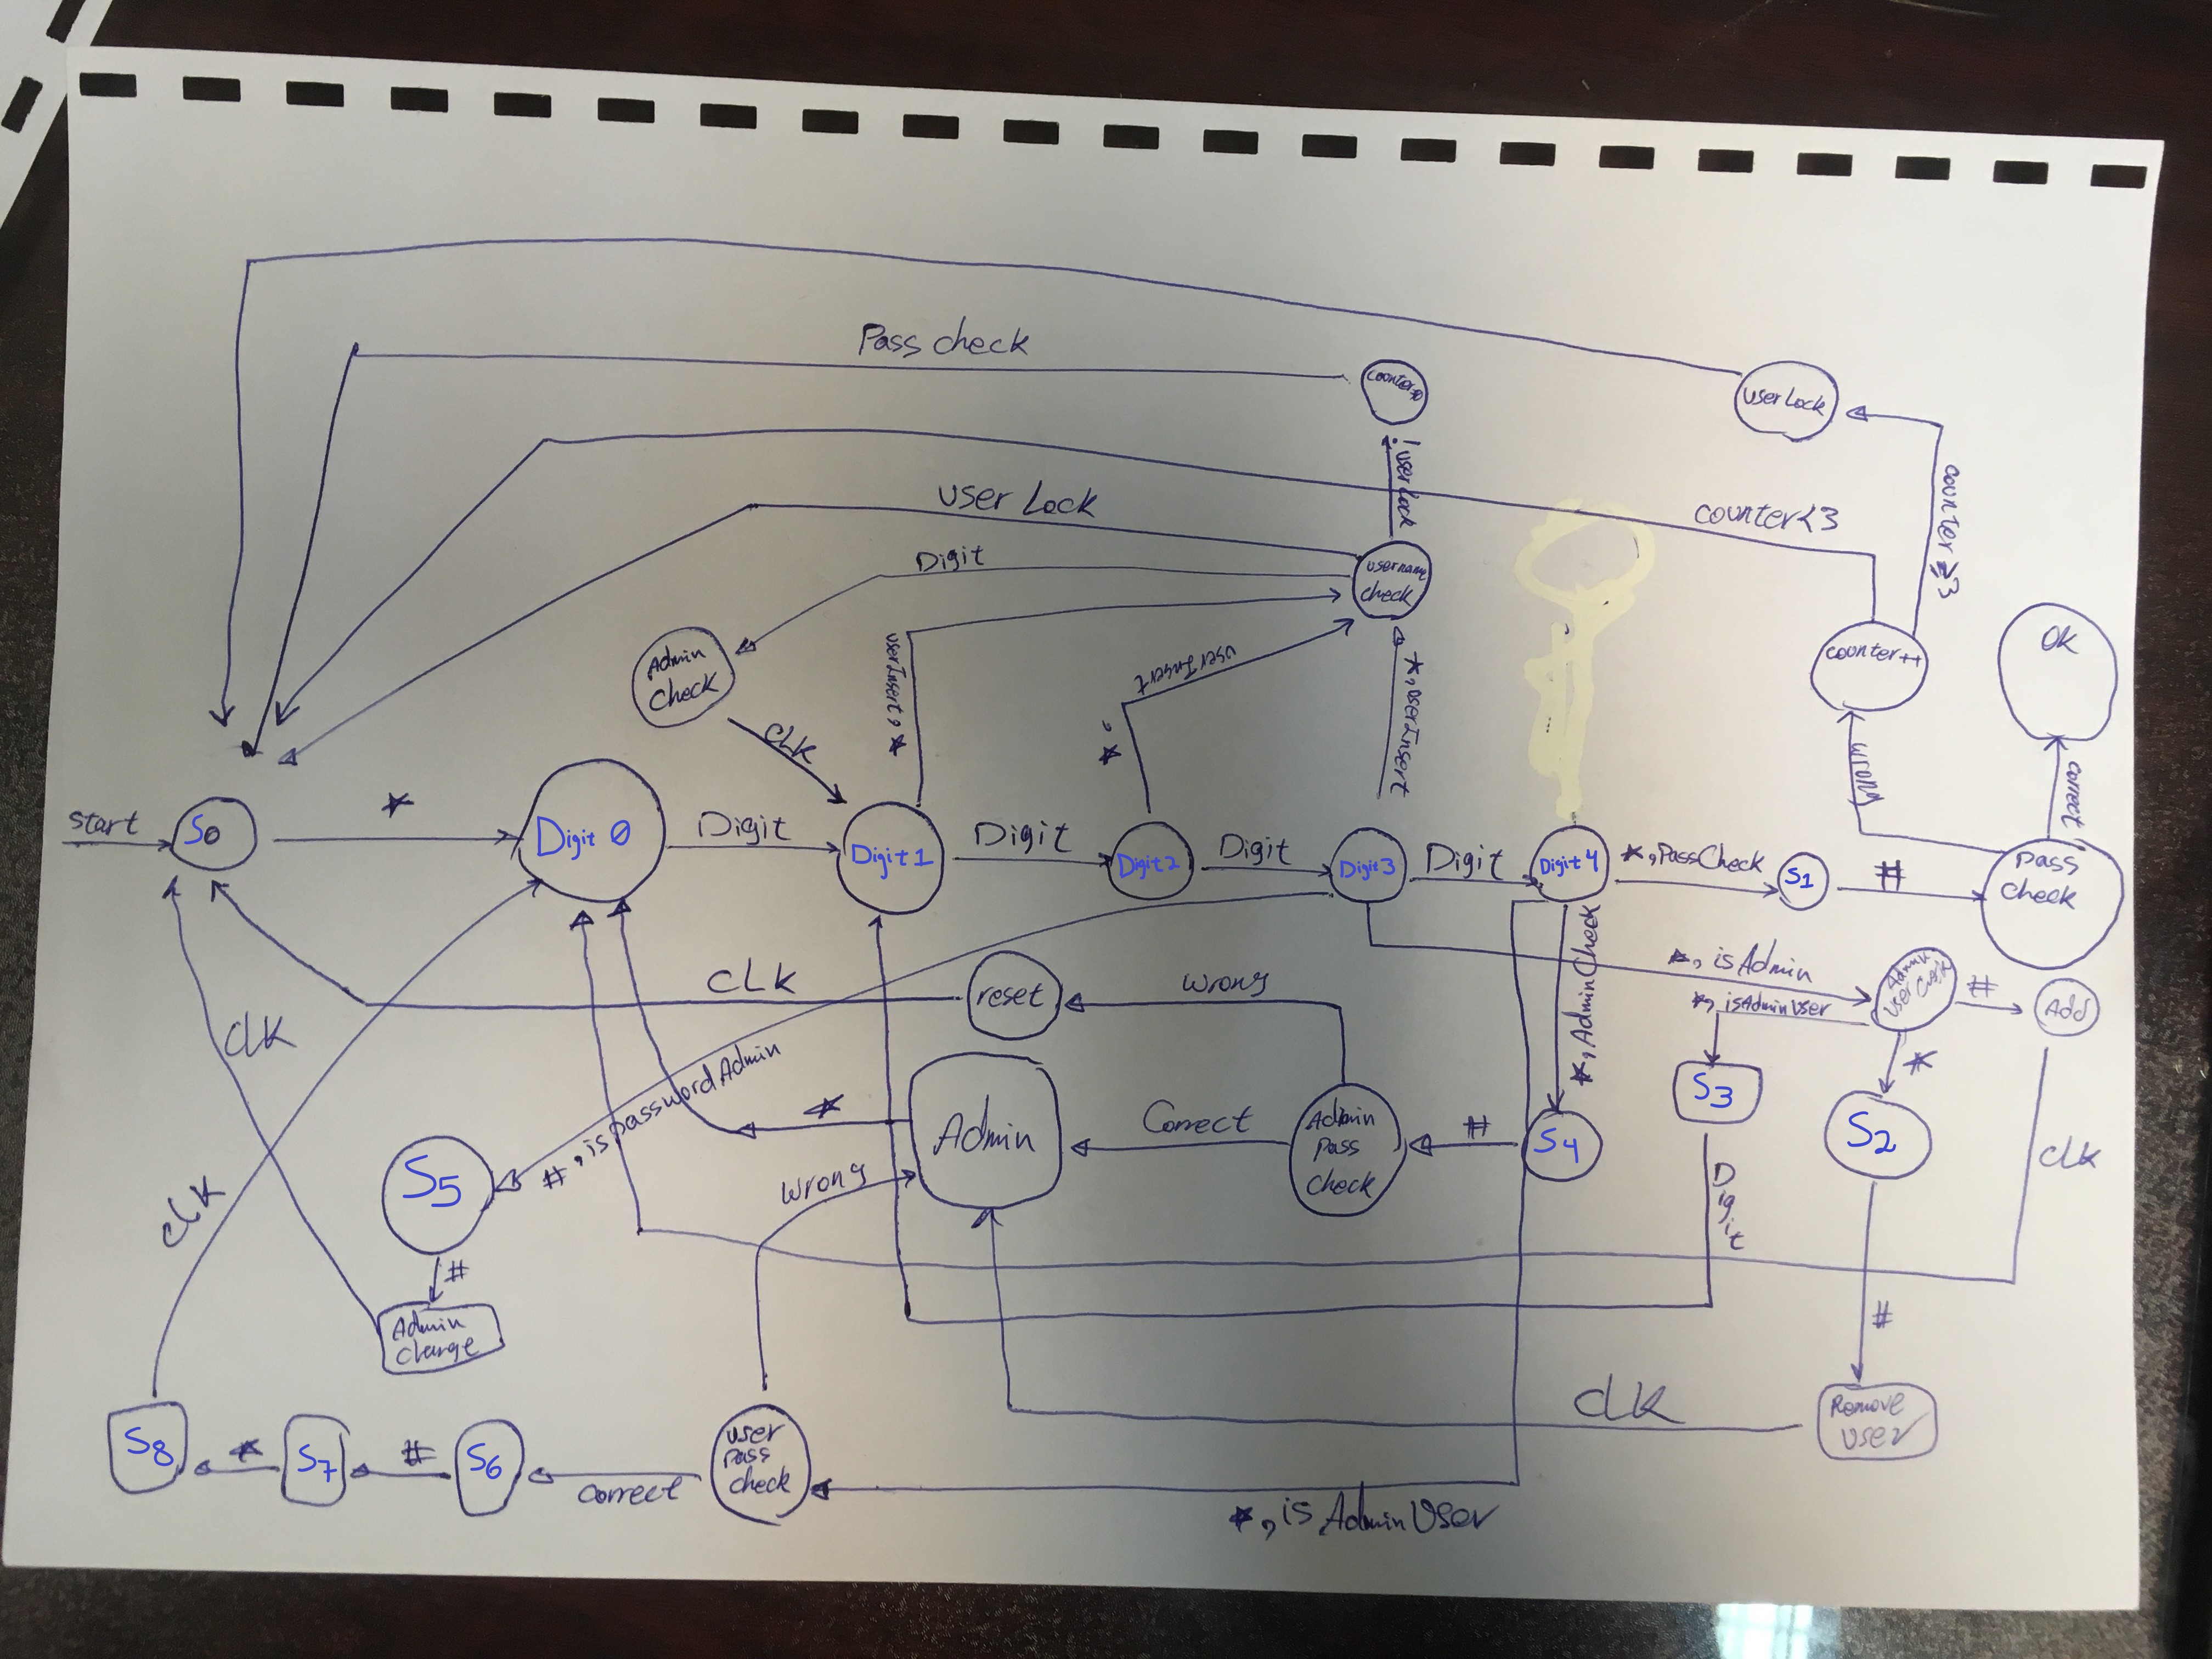 Pass check
counter=0
user Lock
! user Lock
user Lock
counter<3
counter ≥3
Digit
username
check
Admin
check
userInsert, *
userInsert
, *
*, userInsert
counter++
Ok
CLK
wrong
correct
start
S0
*
Digit 0
Digit
Digit 1
Digit
Digit 2
Digit
Digit 3
Digit
Digit 4
*, PassCheck
S1
#
pass
check
CLK
reset
wrong
*, AdminCheck
*, isAdmin
*, isAdminUser
Admin
user check
#
Add
CLK
#, is passwordAdmin
*
Admin
Correct
Admin
pass
check
#
S4
S3
*
S2
CLK
CLK
S5
wrong
Digit
#
Admin
change
#
CLK
Remove
user
S8
*
S7
#
S6
correct
user
pass
check
*, is Admin User